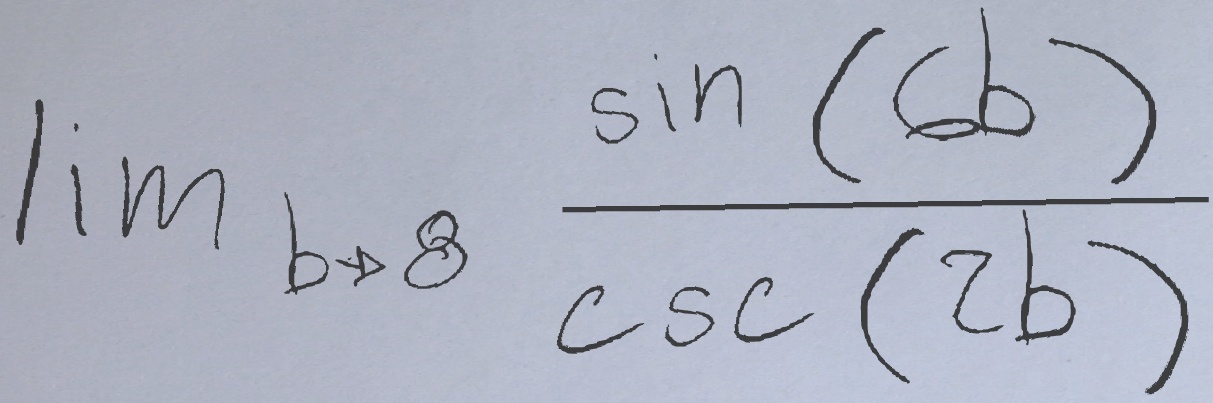 lim b→8 sin (6b) / csc (2b)